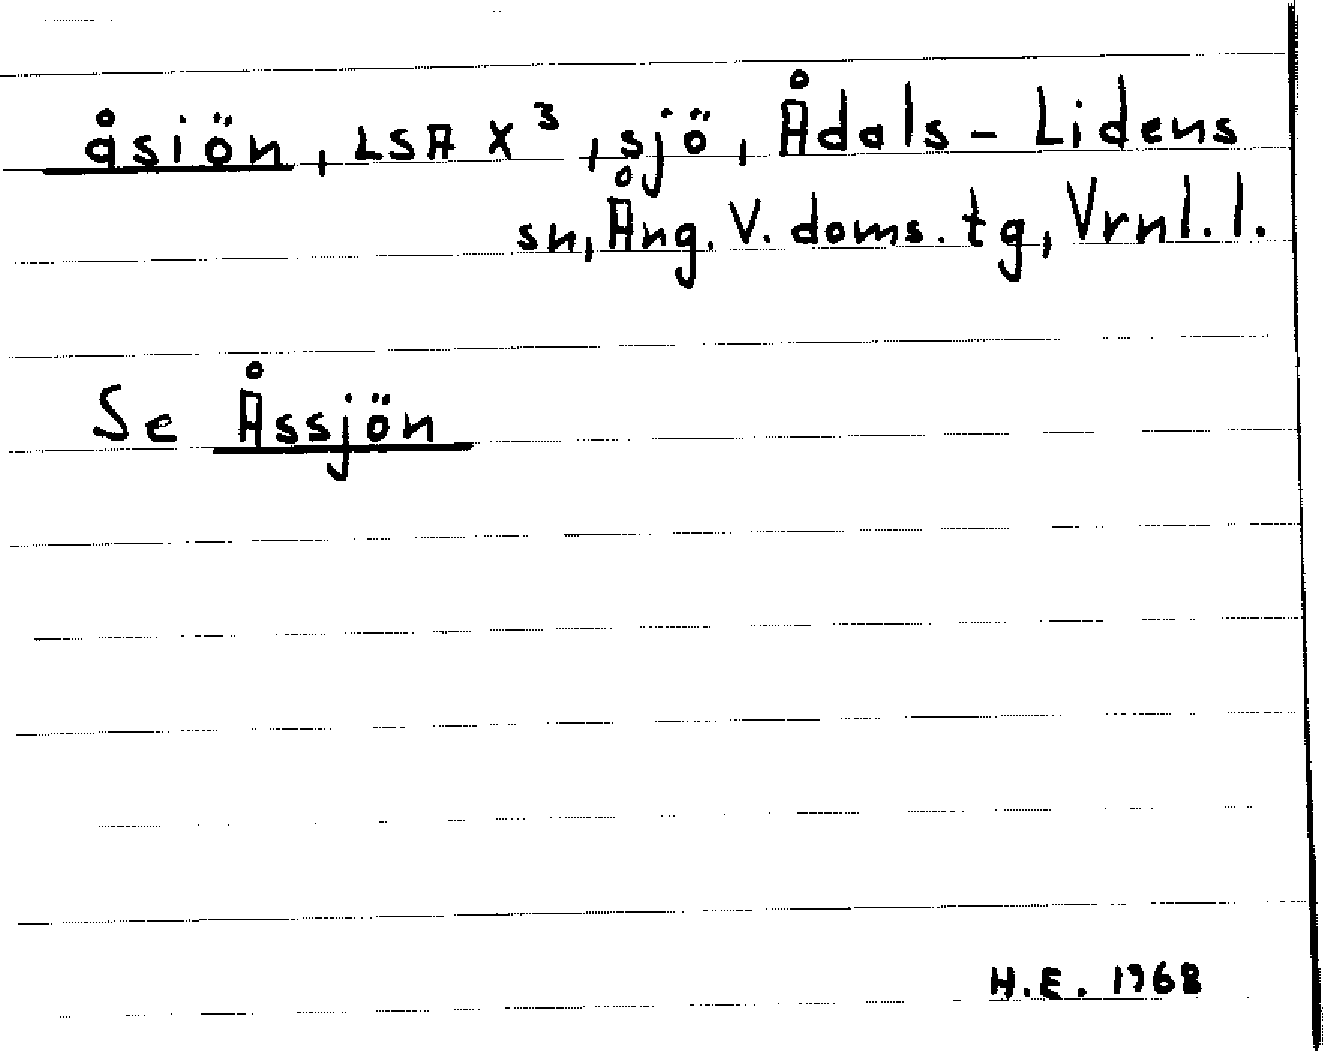 åsiön, LSA X³, sjö, Ådals-Lidens
sn, Ång. V. doms. tg, Vrnl. l.
Se Åssjön
H.E. 1968